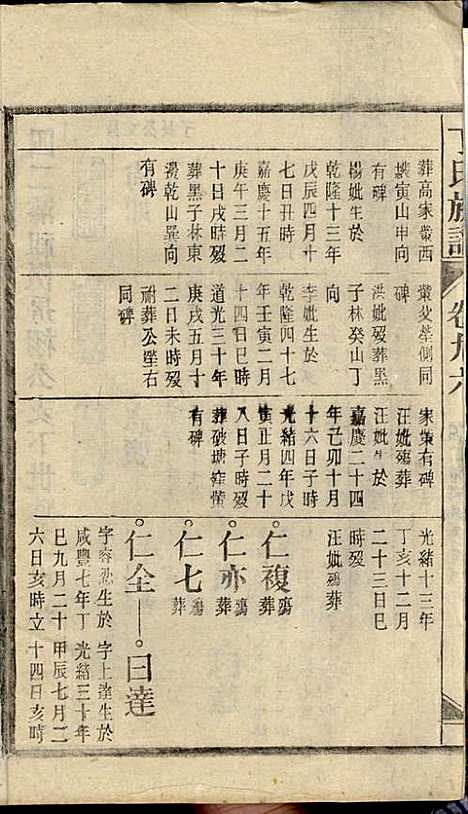 丁氏族譜
卷九六
葬高家凹西
塘寅山申向
有碑
楊妣生於
乾隆十三年
戊辰四月十
七日丑時
嘉慶十五年
庚午三月二
十日戌時歿
葬黑子林東
邊乾山巽向
有碑
塋父塋側同
碑
洪妣歿葬黑
子林癸山丁
向
李妣生於
乾隆四十七
年壬寅二月
十四日巳時
道光三十年
庚戌五月十
二日未時歿
祔葬公塋右
同碑
家集有碑
汪妣殤葬
汪妣生於
嘉慶二十四
年己卯十月
十六日子時
光緒四年戊
寅正月二十
八日子時歿
葬破塘窪塋
有碑
光緒十三年
丁亥十二月
二十三日巳
時歿
汪妣殤葬
仁複殤葬
仁亦殤葬
仁七殤葬
仁全
曰達
字容 生於
咸豐七年丁
巳九月二十
六日亥時立
字上達生於
光緒三十年
甲辰七月二
十四日亥時